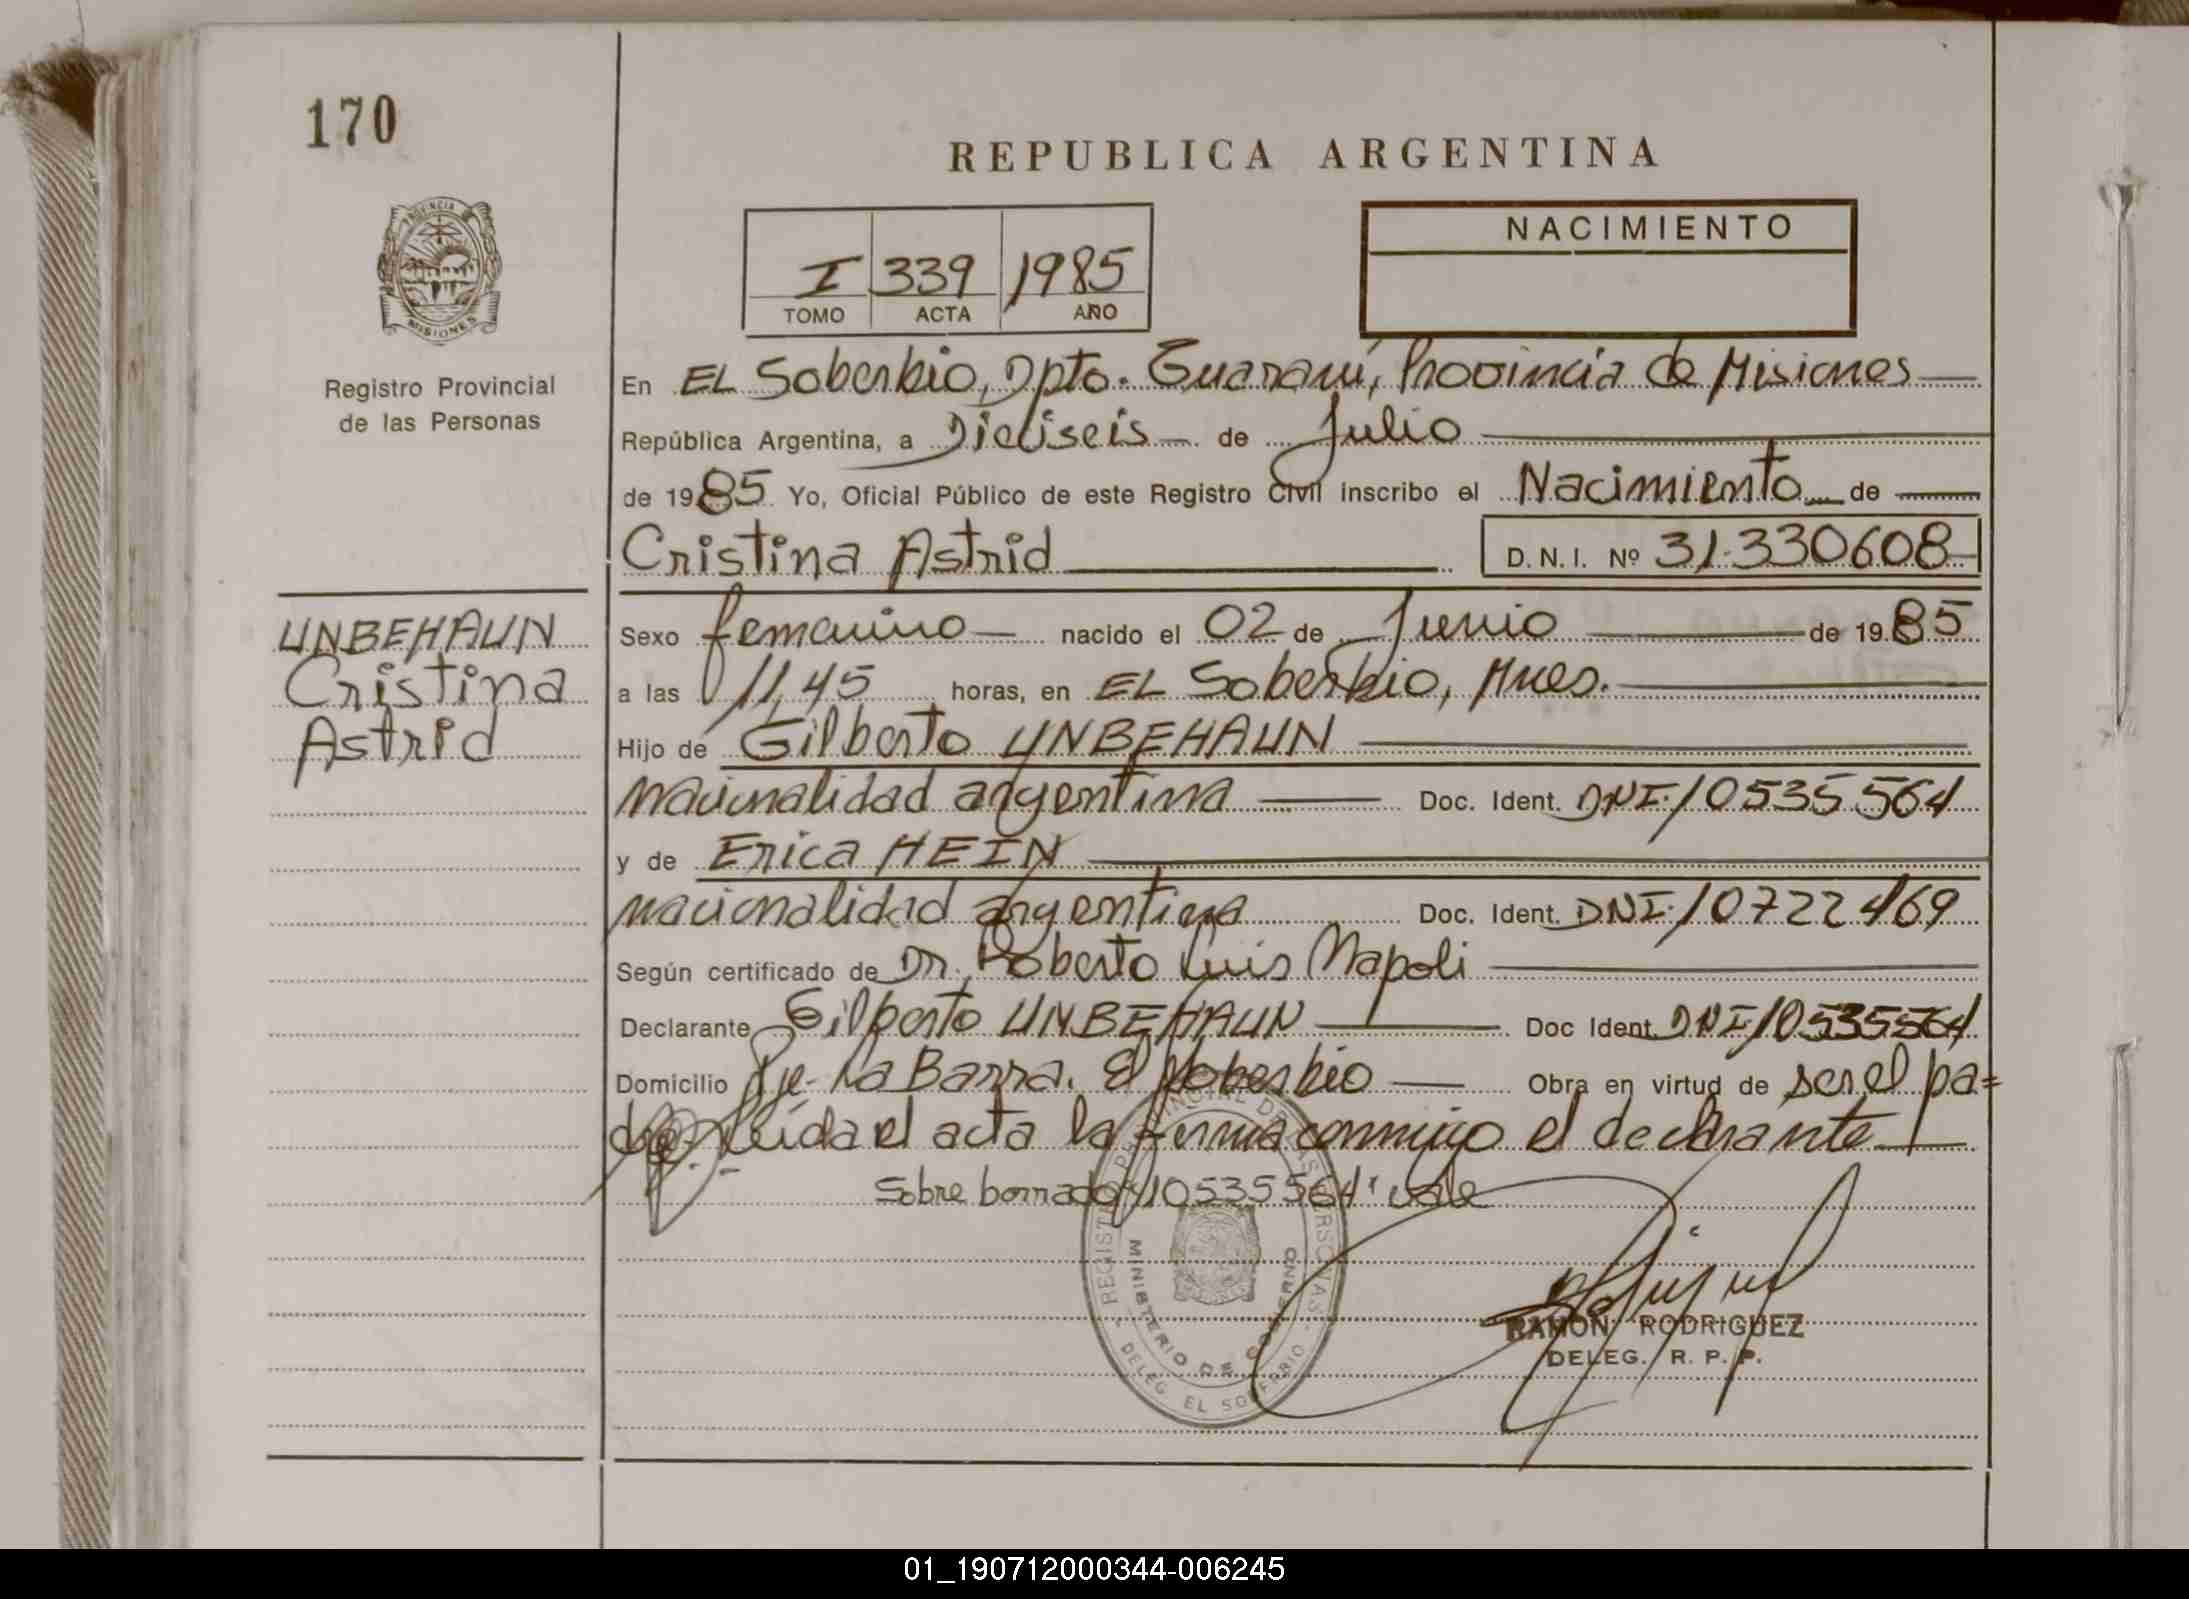 170
REPUBLICA ARGENTINA
PROVINCIA
MISIONES
I 339 1985
TOMO ACTA AÑO
NACIMIENTO
Registro Provincial
de las Personas
En EL Soberbio, Dpto. Guaraní, Provincia de Misiones
República Argentina, a Dieciseis de Julio
de 1985 Yo, Oficial Público de este Registro Civil inscribo el Nacimiento de
Cristina Astrid D.N.I. Nº 31.330608
UNBEHAUN
Cristina
Astrid
Sexo femenino nacido el 02 de Junio de 1985
a las 11,45 horas, en EL Soberbio, Mnes.
Hijo de Gilberto UNBEHAUN
nacionalidad argentina Doc. Ident. DNI. 10535564
y de Erica HEIN
nacionalidad argentina Doc. Ident. DNI. 10722469
Según certificado de Dr. Roberto Luis Napoli
Declarante Gilberto UNBEHAUN Doc Ident DNI 10535564
Domicilio Pje. La Barra. El Soberbio Obra en virtud de ser el pa=
dre. Leída el acta la firma conmigo el declarante
Sobre borrado "10535564" vale
REGISTRO PROVINCIAL DE LAS PERSONAS
MINISTERIO DE GOBIERNO
DELEG. EL SOBERBIO
RAMON RODRIGUEZ
DELEG. R. P. P.
01_190712000344-006245